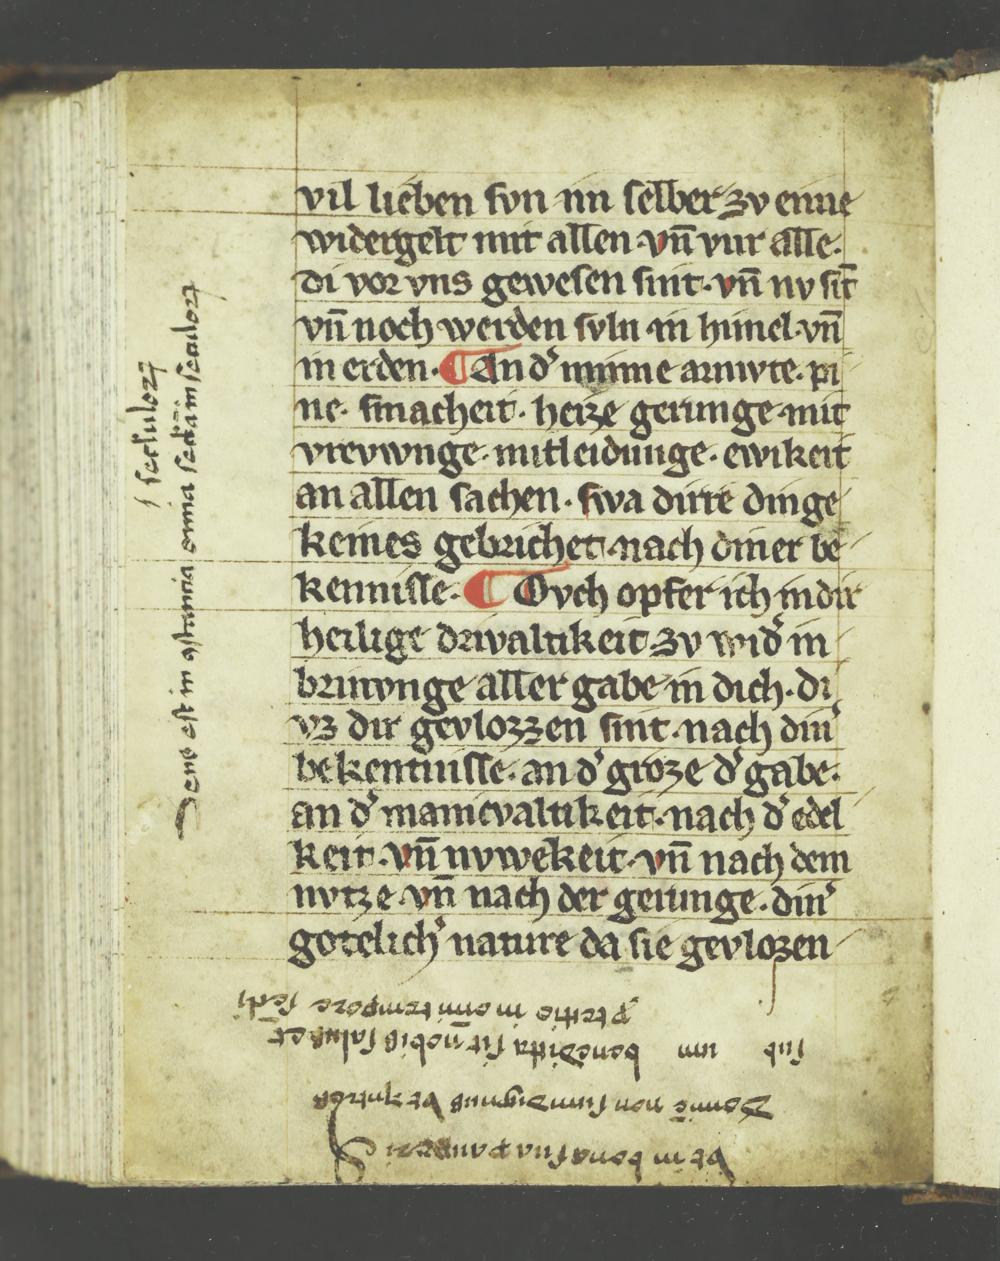 vil lieben svn im selber zv eime
widergelt mit allen. vn̄ vur alle.
di vor vns gewesen sint. vn̄ nv sīt
vn̄ noch werden svln in himel. vn̄
in erden. ¶ An d᾽ minne armvte. pi
ne. smacheit. heize gerunge mit
vrevwnge. mitleidunge. ewikeit
an allen sachen. swa dirre dinge
keines gebrichet. nach diner be
kennisse. ¶ Ovch opfer ich in dir
heilige drivaltikeit. zv wid᾽ in
brinvnge aller gabe in dich. di
vz dir gevlozzen sint. nach din᾽
bekentnisse. an d᾽ groze d᾽ gabe.
an d᾽ manicvaltikeit. nach d᾽ edel
keit. vn̄ nvwekeit. vn̄ nach dem
nvtze vn̄ nach der gerunge. din᾽
gotelich᾽ nature da sie gevlozen
seculoꝝ
Deus est in omnia seculoꝝ
in omni tempore
sub benedicta sit nobis salus et
Domine non sum dignus vt intres